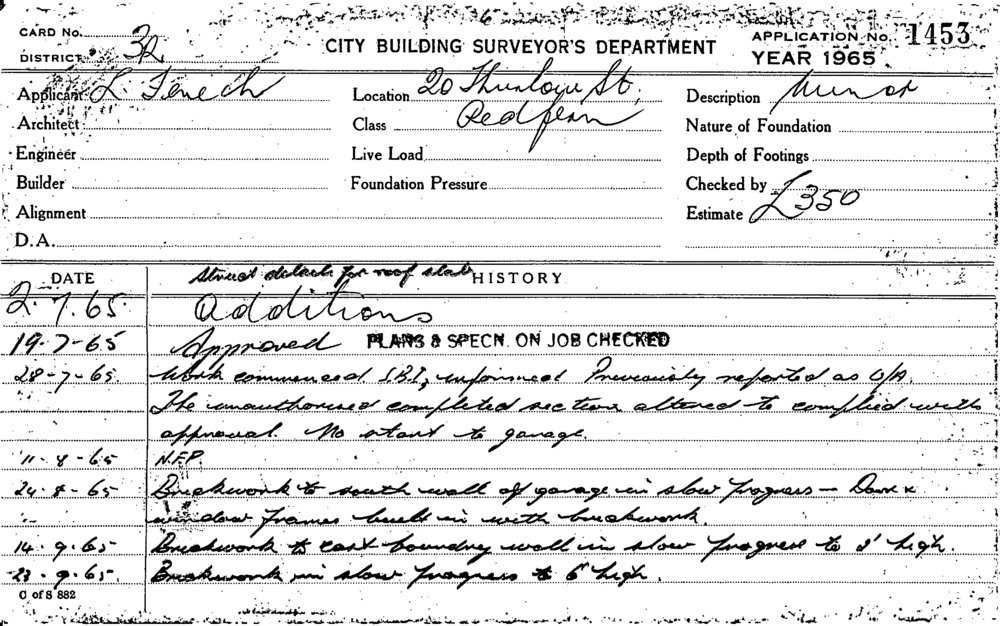 CARD No. 3A
DISTRICT
CITY BUILDING SURVEYOR'S DEPARTMENT
APPLICATION No. 1453
YEAR 1965
Applicant L Fenech
Location 20 Thurlow St,
Redfern
Description Minor
Architect
Class
Nature of Foundation
Engineer
Live Load
Depth of Footings
Builder
Foundation Pressure
Checked by
Alignment
Estimate £350
D.A.
DATE
HISTORY
Struct details for roof slab
2.7.65. additions
19-7-65 Approved PLANS & SPECN. ON JOB CHECKED
28-7-65. Work commenced. I.B.I, informed Previously reported as O/A.
The unauthorised completed section altered to complied with
approval. No start to garage.
11-8-65 N.F.P.
24-8-65 Brickwork to south wall of garage in slow progress - Door x
window frames built in with brickwork.
14.9.65- Brickwork to east boundry wall in slow progress to 2' high.
23-9.65. Brickwork in slow progress to 6' high.
C of S 882